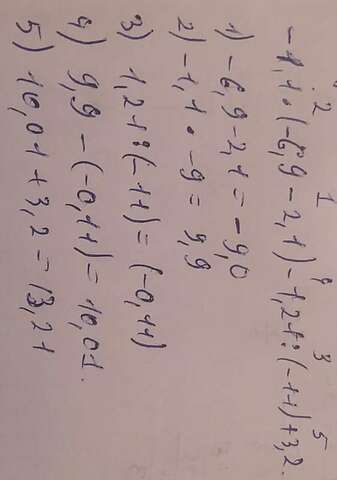 2 1 4 3 5
-1,1·(-6,9-2,1)-1,21:(-11)+3,2.
1) -6,9-2,1=-9,0
2) -1,1·-9=9,9
3) 1,21:(-11)=(-0,11)
4) 9,9-(-0,11)=10,01.
5) 10,01+3,2=13,21